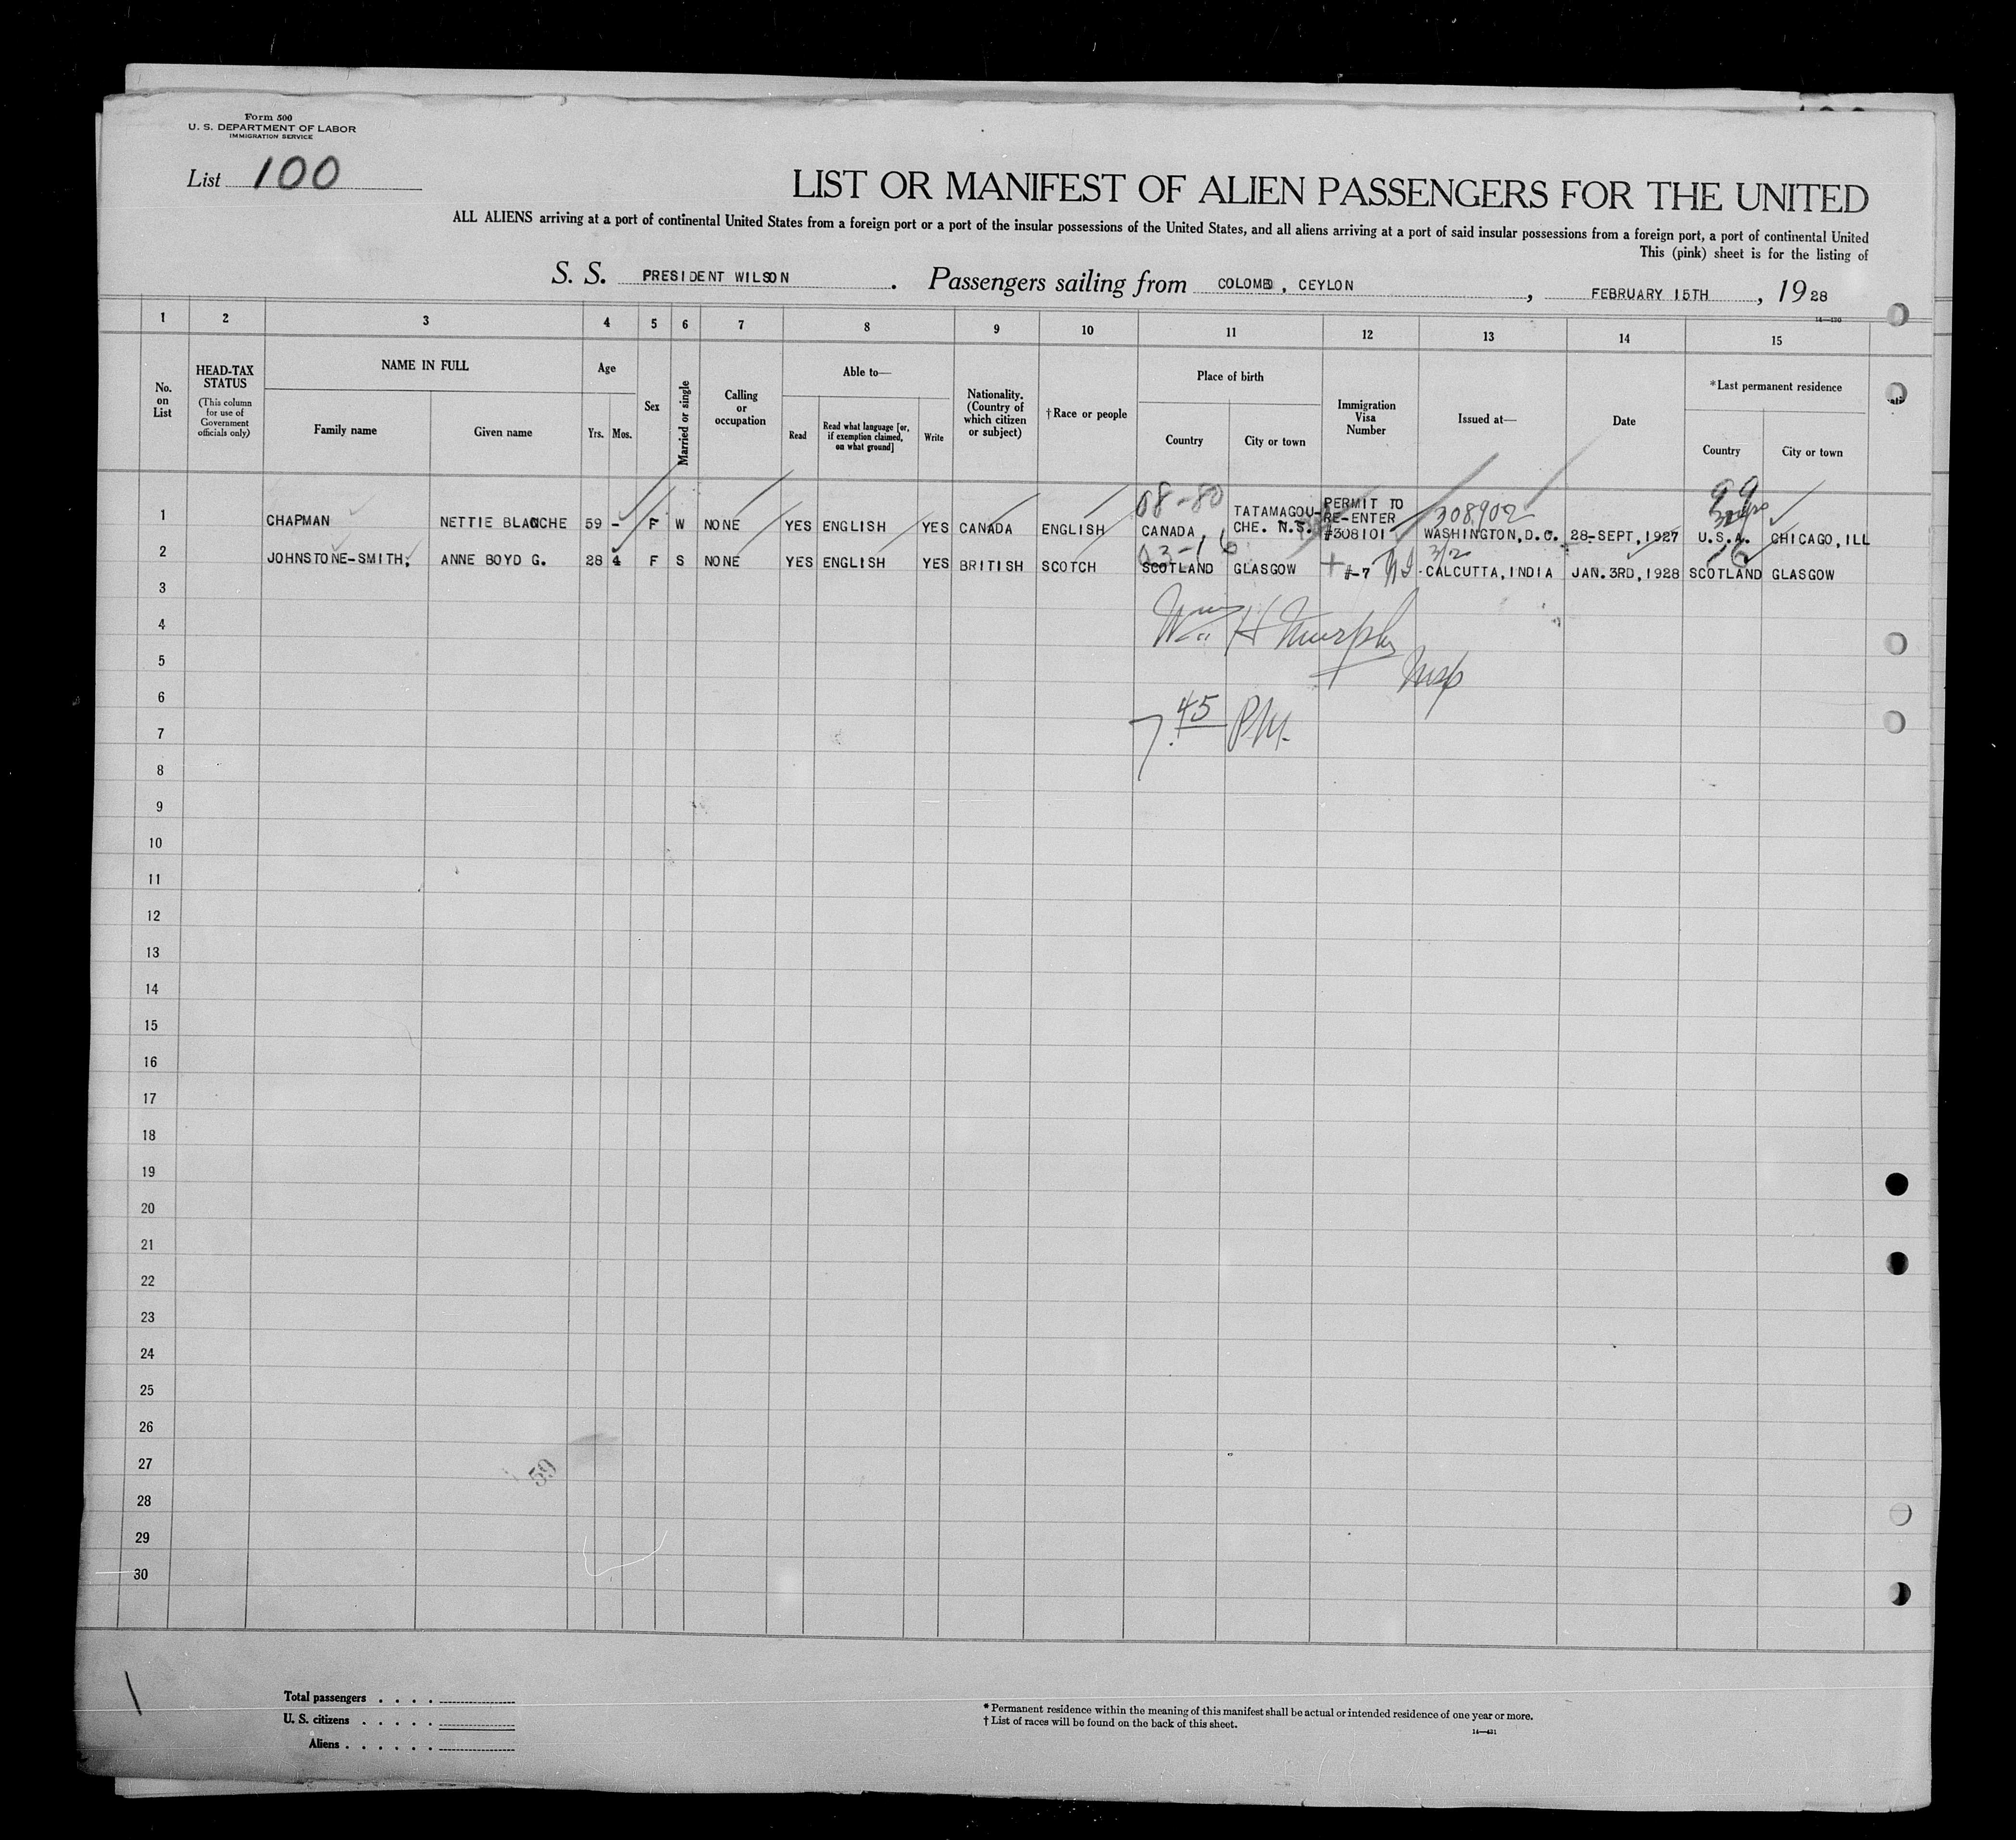 Form 500
U. S. DEPARTMENT OF LABOR
IMMIGRATION SERVICE
List 100
LIST OR MANIFEST OF ALIEN PASSENGERS FOR THE UNITED
ALL ALIENS arriving at a port of continental United States from a foreign port or a port of the insular possessions of the United States, and all aliens arriving at a port of said insular possessions from a foreign port, a port of continental United
This (pink) sheet is for the listing of
S. S. PRESIDENT WILSON . Passengers sailing from COLOMBO, CEYLON , FEBRUARY 15TH , 1928
14—430
1 2 3 4 5 6 7 8 9 10 11 12 13 14 15
No. on List
HEAD-TAX STATUS
(This column for use of Government officials only)
NAME IN FULL
Family name
Given name
Age
Yrs. Mos.
Sex
Married or single
Calling or occupation
Able to—
Read
Read what language [or, if exemption claimed, on what ground]
Write
Nationality. (Country of which citizen or subject)
†Race or people
Place of birth
Country
City or town
Immigration Visa Number
Issued at—
Date
*Last permanent residence
Country
City or town
08-80 308902 99
1 CHAPMAN NETTIE BLANCHE 59 - F W NONE YES ENGLISH YES CANADA ENGLISH CANADA TATAMAGOU-CHE. N.S. PERMIT TO RE-ENTER #308101 WASHINGTON, D.C. 28-SEPT, 1927 U.S.A. CHICAGO, ILL
03-16 3/2
2 JOHNSTONE-SMITH, ANNE BOYD G. 28 4 F S NONE YES ENGLISH YES BRITISH SCOTCH SCOTLAND GLASGOW #-7 CALCUTTA, INDIA JAN. 3RD, 1928 SCOTLAND GLASGOW
3
4 Wm H Murphy
5 Insp
6
7 7.45 PM.
8
9
10
11
12
13
14
15
16
17
18
19
20
21
22
23
24
25
26
27 59
28
29
30
Total passengers . . . .
U. S. citizens . . . . .
Aliens . . . . . .
* Permanent residence within the meaning of this manifest shall be actual or intended residence of one year or more.
† List of races will be found on the back of this sheet.
14—431